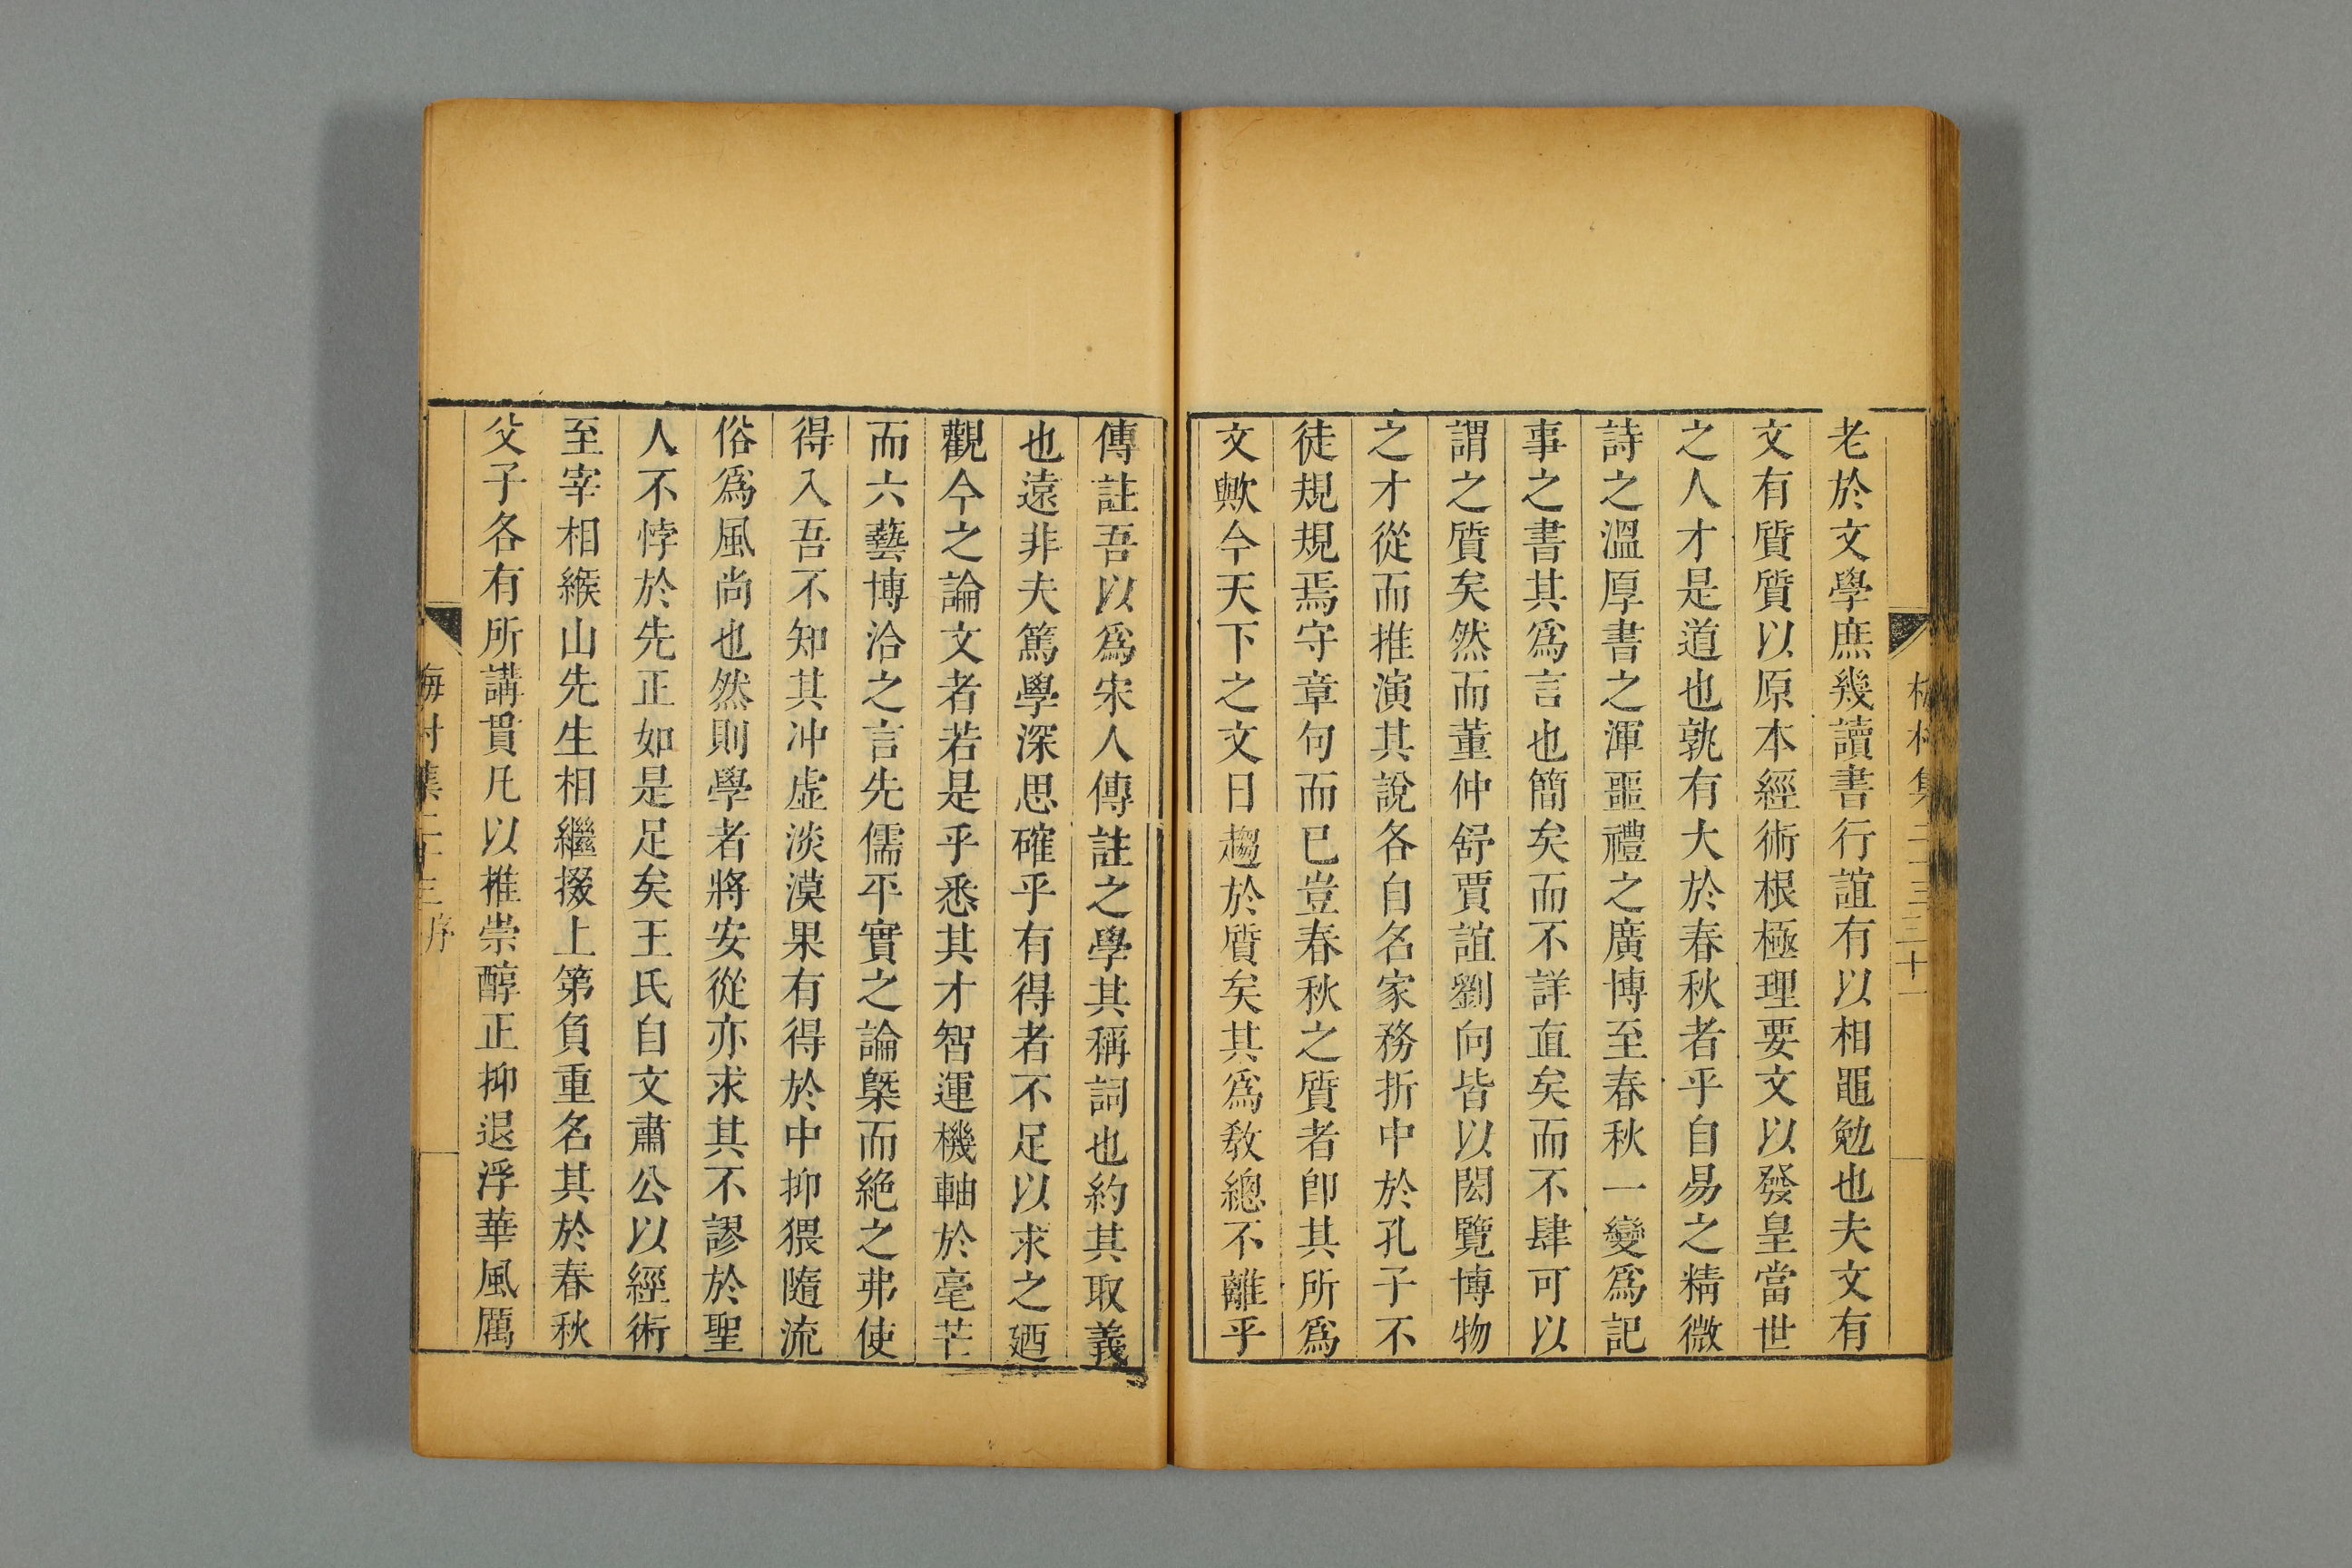 老於文學庶幾讀書行誼有以相黽勉也夫文有
文有質質以原本經術根極理要文以發皇當世
之人才是道也孰有大於春秋者乎自易之精微
詩之溫厚書之渾噩禮之廣博至春秋一變爲記
事之書其爲言也簡矣而不詳直矣而不肆可以
謂之質矣然而董仲舒賈誼劉向皆以閎覽博物
之才從而推演其說各自名家務折中於孔子不
徒規規焉守章句而已豈春秋之質者卽其所爲
文歟今天下之文日趨於質矣其爲敎總不離乎
傳註吾以爲宋人傳註之學其稱詞也約其取義
也遠非夫篤學深思確乎有得者不足以求之廼
觀今之論文者若是乎悉其才智運機軸於毫芒
而六藝博洽之言先儒平實之論槩而絶之弗使
得入吾不知其冲虛淡漠果有得於中抑猥隨流
俗爲風尚也然則學者將安從亦求其不謬於聖
人不悖於先正如是足矣王氏自文肅公以經術
至宰相緱山先生相繼掇上第負重名其於春秋
父子各有所講貫凡以推崇醇正抑退浮華風厲
梅村集二十三序